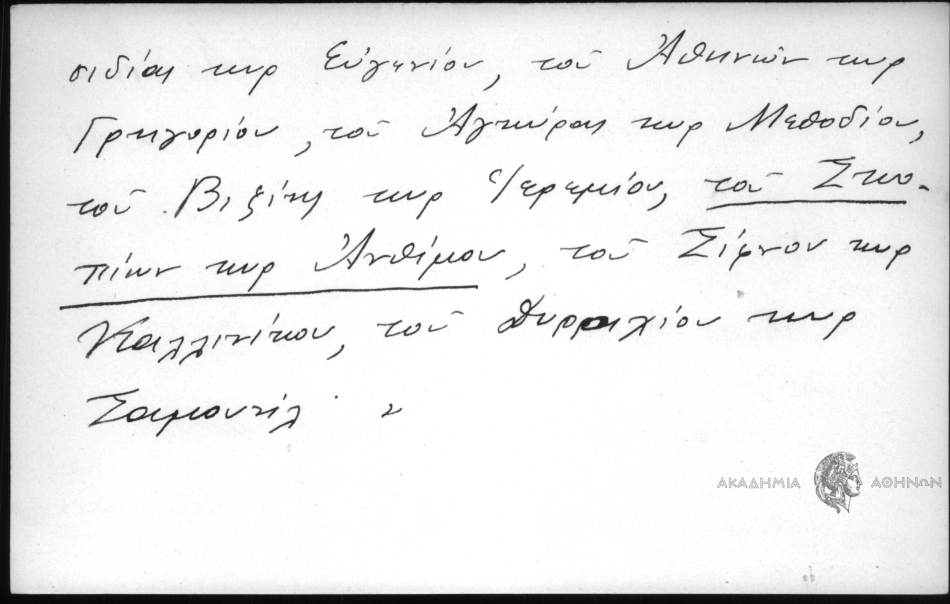 σιδίας κυρ Εὐγενίου, τοῦ Ἀθηνῶν κυρ
Γρηγορίου, τοῦ Ἀγκύρας κυρ Μεθοδίου,
τοῦ Βιζύης κυρ Ἱερεμίου, τοῦ Σκο-
πίων κυρ Ἀνθίμου, τοῦ Σίφνου κυρ
Καλλινίκου, τοῦ Δυρραχίου κυρ
Σαμουήλ »
ΑΚΑΔΗΜΙΑ ΑΘΗΝΩΝ